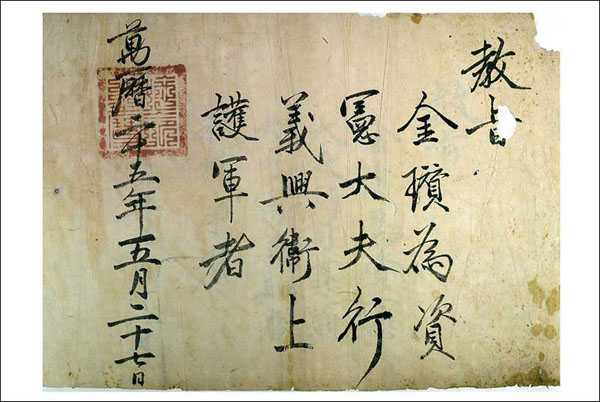 教旨
金璸為資
憲大夫行
義興衛上
護軍者
萬曆二十五年五月二十七日